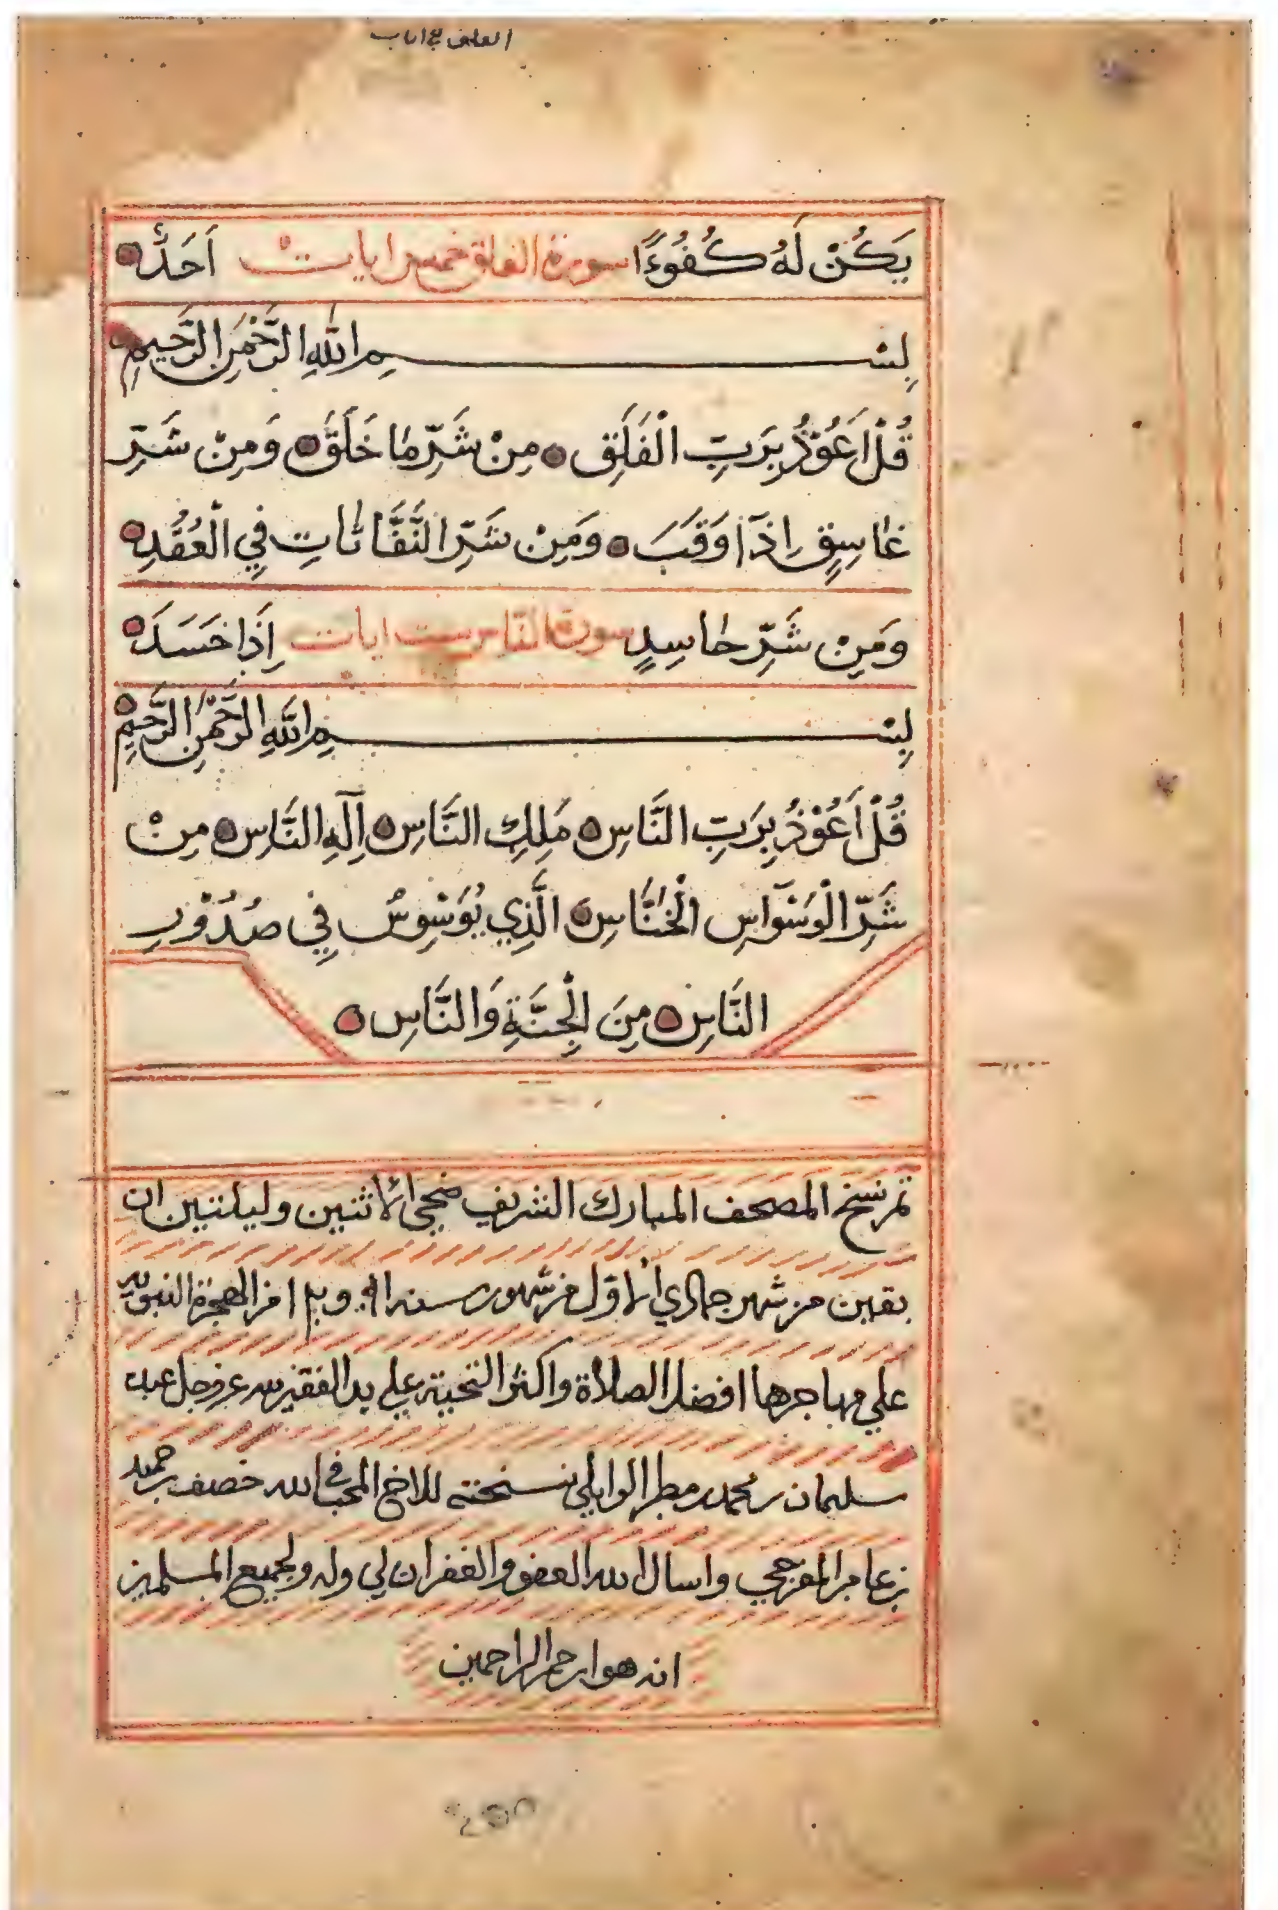 يَكُنْ لَهُ كُفُوءًا سورة الفلق خمس ايات اَحَدٌ
بِسْمِ اللّٰهِ الرَّحْمٰنِ الرَّحِيمِ
قُلْ اَعُوْذُ بِرَبِّ الْفَلَقِ مِنْ شَرِّ مَا خَلَقَ وَمِنْ شَرِّ
غَاسِقٍ اِذَا وَقَبَ وَمِنْ شَرِّ النَّفَّاثَاتِ فِي الْعُقَدِ
وَمِنْ شَرِّ حَاسِدٍ سورة الناس ست ايات اِذَا حَسَدَ
بِسْمِ اللّٰهِ الرَّحْمٰنِ الرَّحِيمِ
قُلْ اَعُوْذُ بِرَبِّ النَّاسِ مَلِكِ النَّاسِ اِلٰهِ النَّاسِ مِنْ
شَرِّ الْوَسْوَاسِ الْخَنَّاسِ الَّذِي يُوَسْوِسُ فِي صُدُوْرِ
النَّاسِ مِنَ الْجِنَّةِ وَالنَّاسِ
تم نسخ المصحف المبارك الشريف ضحى الاثنين وليلتين ان
بقين من شهر جمادي الاول من شهور سنة من الهجرة النبويه
على مهاجرها افضل الصلاة واكثر التحية على يد الفقير لله عز وجل عبد
سليمان بن محمد بن مطر الوايلي نسخته للاخ المحب في الله خصف بن حميد
بن عامر المفرجي واسال الله العفو والغفران لي وله ولجميع المسلمين
انه هو ارحم الراحمين